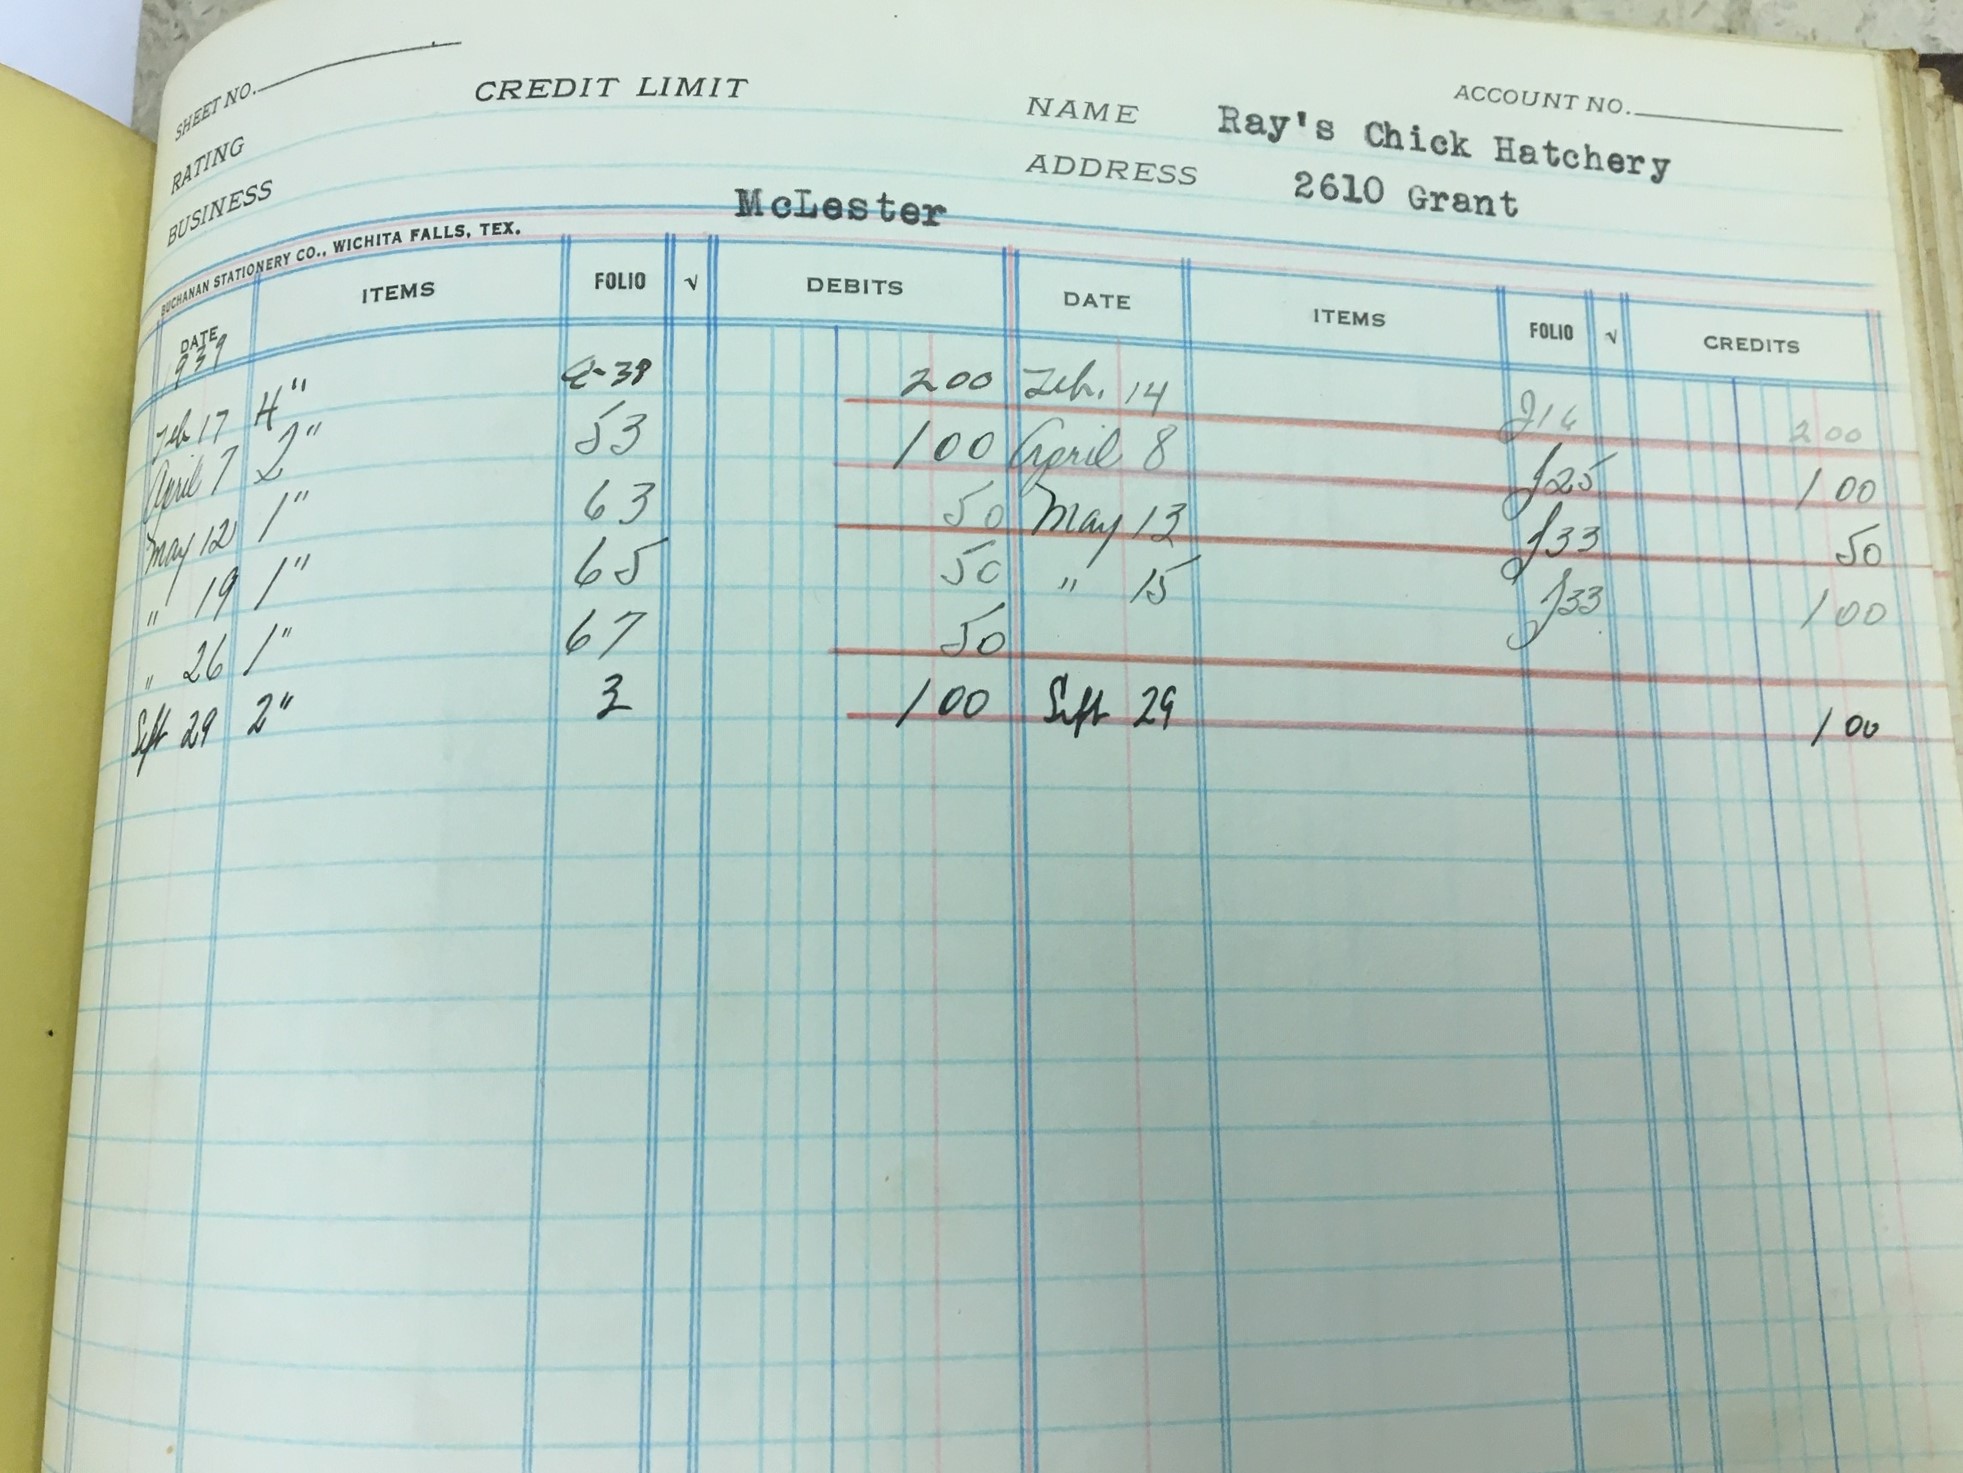 SHEET NO. CREDIT LIMIT ACCOUNT NO.
RATING NAME Ray's Chick Hatchery
BUSINESS McLester ADDRESS 2610 Grant
BUCHANAN STATIONERY CO., WICHITA FALLS, TEX.
DATE ITEMS FOLIO √ DEBITS DATE ITEMS FOLIO √ CREDITS
939
Feb 17 4" 38 200 Feb. 14 J16 200
April 7 2" 53 100 April 8 J25 100
May 12 1" 63 50 May 13 J33 50
" 19 1" 65 50 " 15 J33 100
" 26 1" 67 50
Sept 29 2" 3 100 Sept 29 100